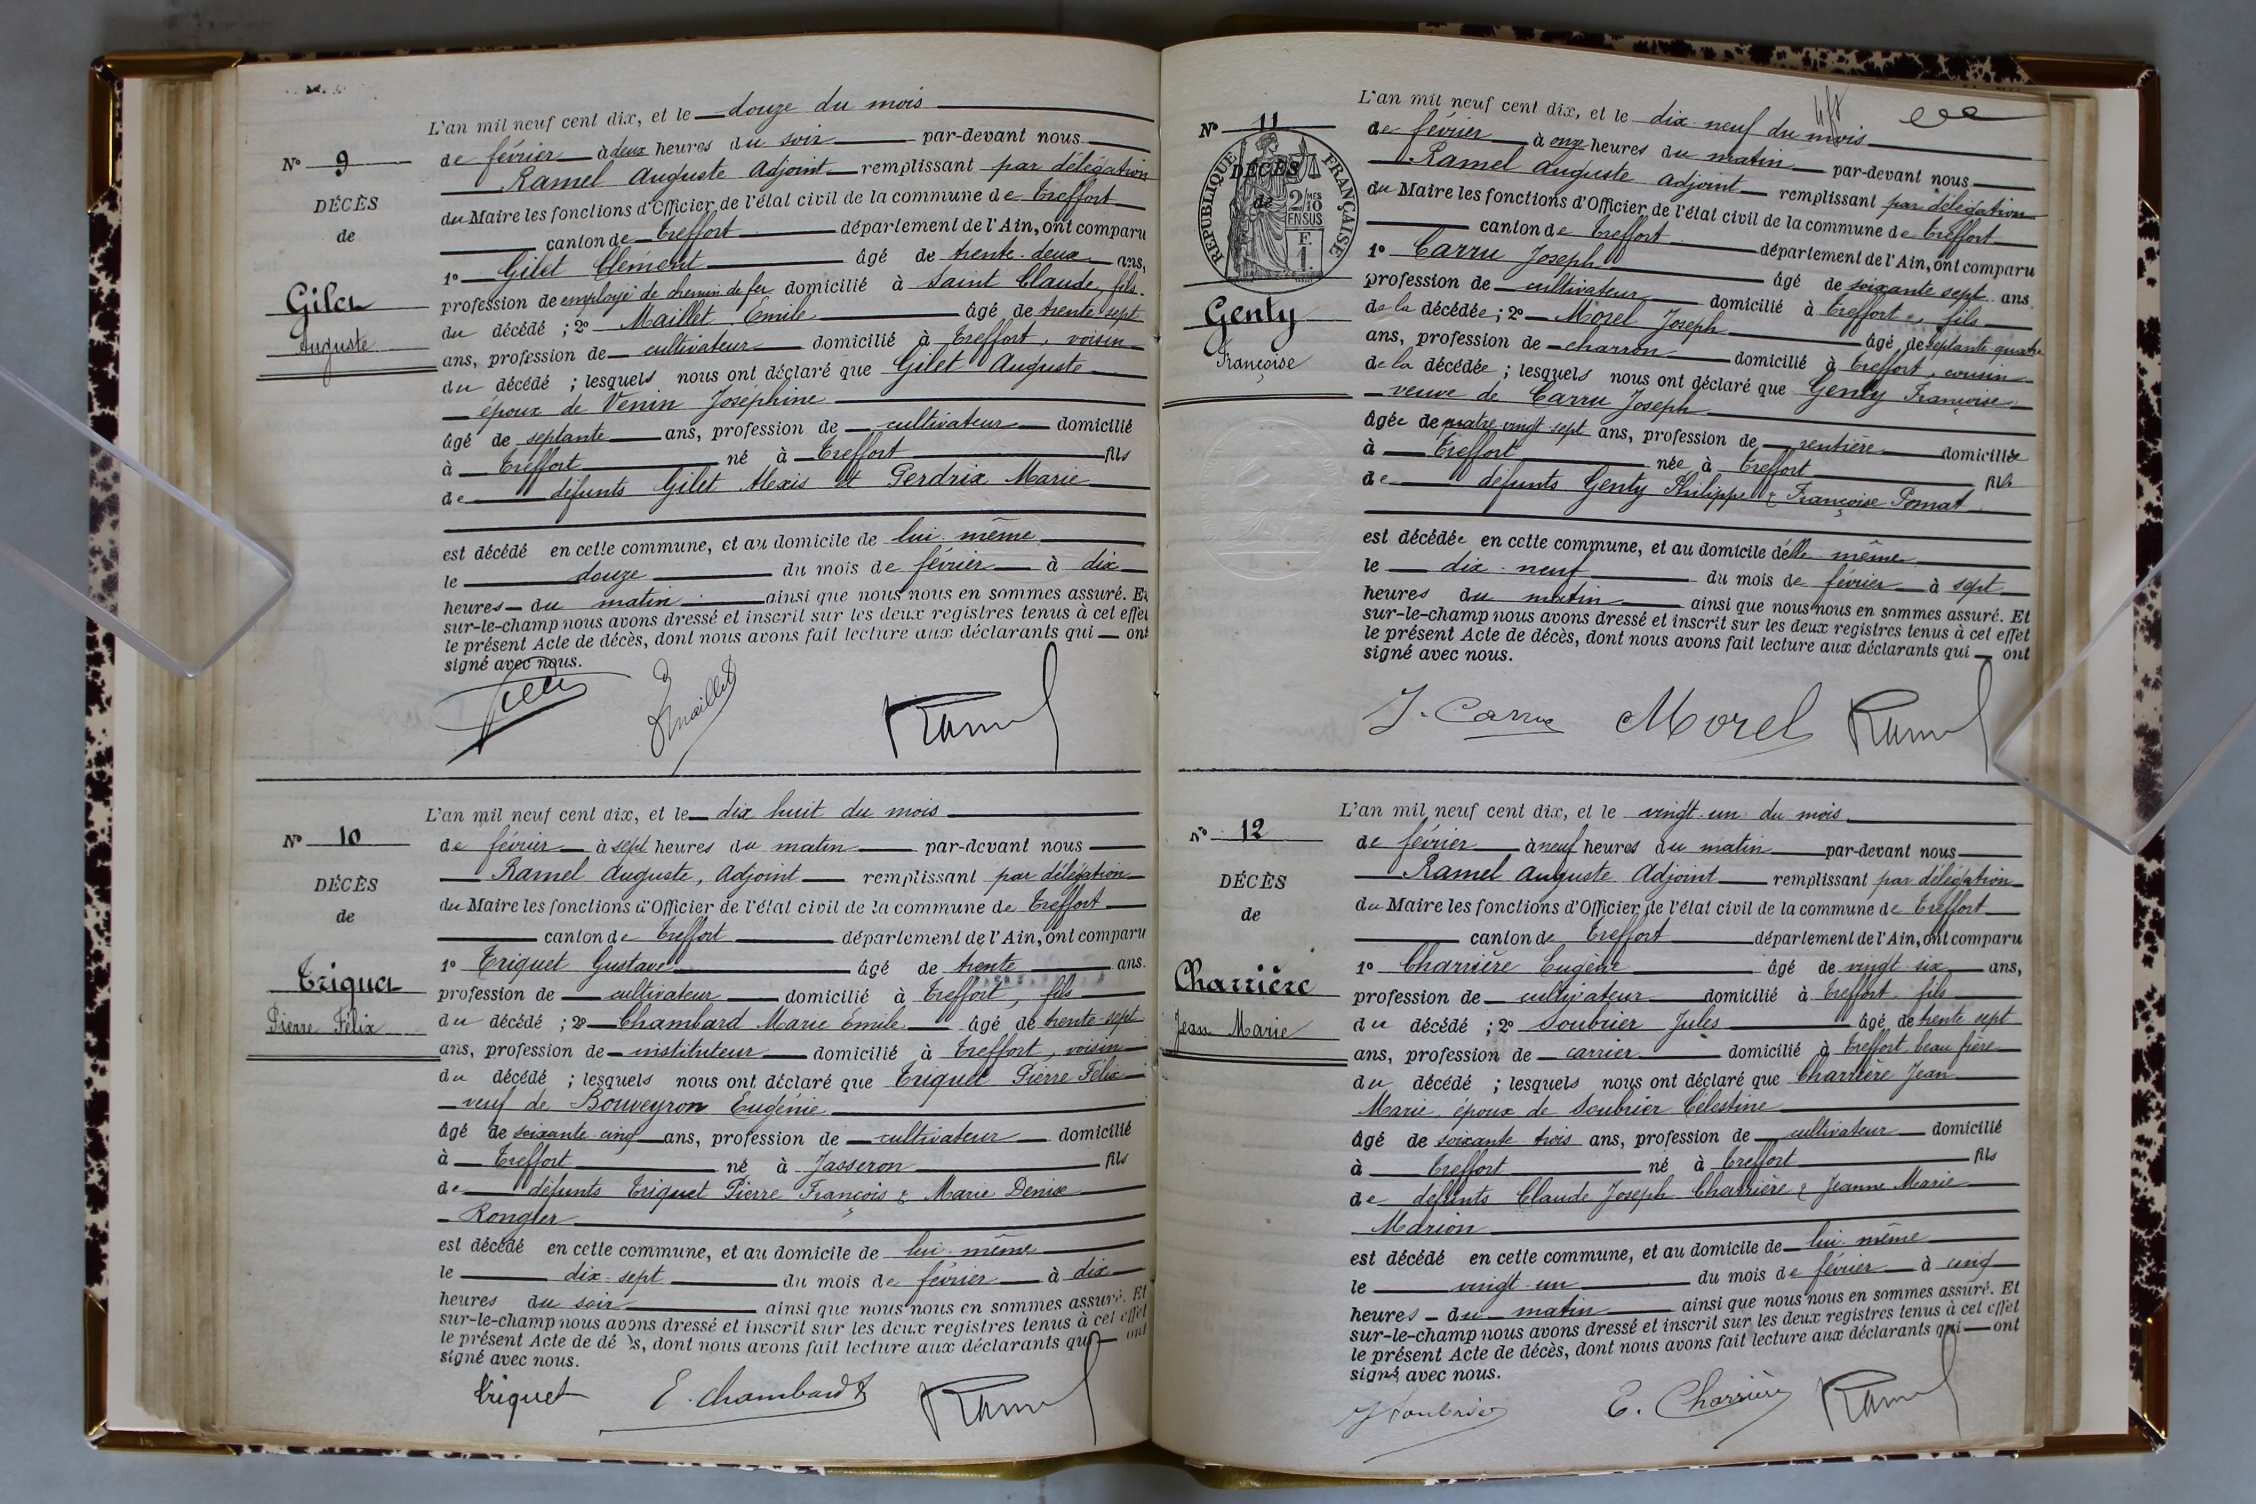 N° 9
DÉCÈS
de
Gilet
Auguste
L'an mil neuf cent dix, et le douze du mois
de février à deux heures du soir par-devant nous
Ramel Auguste Adjoint remplissant par délégation
du Maire les fonctions d'Officier de l'état civil de la commune de Treffort
canton de Treffort département de l'Ain, ont comparu
1° Gilet Clément âgé de trente-deux ans,
profession de employé de chemin de fer domicilié à Saint Claude, fils
du décédé ; 2° Maillet Émile âgé de trente sept
ans, profession de cultivateur domicilié à Treffort, voisin
du décédé ; lesquels nous ont déclaré que Gilet Auguste
époux de Venin Joséphine
âgé de septante ans, profession de cultivateur domicilié
à Treffort né à Treffort fils
de défunts Gilet Alexis et Perdrix Marie
est décédé en cette commune, et au domicile de lui-même
le douze du mois de février à dix
heures du matin ainsi que nous nous en sommes assuré. Et
sur-le-champ nous avons dressé et inscrit sur les deux registres tenus à cet effet
le présent Acte de décès, dont nous avons fait lecture aux déclarants qui ont
signé avec nous.
Gilet Emaillet Ramel
N° 10
DÉCÈS
de
Triquet
Pierre Félix
L'an mil neuf cent dix, et le dix huit du mois
de février à sept heures du matin par-devant nous
Ramel Auguste, Adjoint remplissant par délégation
du Maire les fonctions d'Officier de l'état civil de la commune de Treffort
canton de Treffort département de l'Ain, ont comparu
1° Triquet Gustave âgé de trente ans.
profession de cultivateur domicilié à Treffort, fils
du décédé ; 2° Chambard Marie Émile âgé de trente-sept
ans, profession de instituteur domicilié à Treffort, voisin
du décédé ; lesquels nous ont déclaré que Triquet Pierre Félix
veuf de Bouveyron Eugénie
âgé de soixante cinq ans, profession de cultivateur domicilié
à Treffort né à Jasseron fils
de défunts Triquet Pierre François & Marie Denise
Rongier
est décédé en cette commune, et au domicile de lui-même
le dix-sept du mois de février à dix
heures du soir ainsi que nous nous en sommes assuré. Et
sur-le-champ nous avons dressé et inscrit sur les deux registres tenus à cet effet
le présent Acte de décès, dont nous avons fait lecture aux déclarants qui ont
signé avec nous.
Triquet E. Chambard Ramel
N° 11
RÉPUBLIQUE FRANÇAISE
2/10 MES
EN SUS
F.
1.
DÉCÈS
de
Genty
Françoise
L'an mil neuf cent dix, et le dix-neuf du mois
de février à onze heures du matin par-devant nous
Ramel Auguste Adjoint remplissant par délégation
du Maire les fonctions d'Officier de l'état civil de la commune de Treffort
canton de Treffort département de l'Ain, ont comparu
1° Carru Joseph âgé de soixante sept ans
profession de cultivateur domicilié à Treffort, fils
de la décédée ; 2° Morel Joseph âgé de septante quatre
ans, profession de charron domicilié à Treffort, cousin
de la décédée ; lesquels nous ont déclaré que Genty Françoise
veuve de Carru Joseph
âgée de quatre vingt sept ans, profession de rentière domiciliée
à Treffort née à Treffort fille
de défunts Genty Philippe & Françoise Pomat
est décédée en cette commune, et au domicile d'elle-même
le dix-neuf du mois de février à sept
heures du matin ainsi que nous nous en sommes assuré. Et
sur-le-champ nous avons dressé et inscrit sur les deux registres tenus à cet effet
le présent Acte de décès, dont nous avons fait lecture aux déclarants qui ont
signé avec nous.
J. Carru Morel Ramel
N° 12
DÉCÈS
de
Charrière
Jean Marie
L'an mil neuf cent dix, et le vingt-un du mois
de février à neuf heures du matin par-devant nous
Ramel Auguste Adjoint remplissant par délégation
du Maire les fonctions d'Officier de l'état civil de la commune de Treffort
canton de Treffort département de l'Ain, ont comparu
1° Charrière Eugène âgé de vingt-six ans,
profession de cultivateur domicilié à Treffort fils
du décédé ; 2° Soubrier Jules âgé de trente sept
ans, profession de carrier domicilié à Treffort beau frère
du décédé ; lesquels nous ont déclaré que Charrière Jean
Marie époux de Soubrier Célestine
âgé de soixante-trois ans, profession de cultivateur domicilié
à Treffort né à Treffort fils
de défunts Claude Joseph Charrière & Jeanne Marie
Marion
est décédé en cette commune, et au domicile de lui-même
le vingt-un du mois de février à cinq
heures du matin ainsi que nous nous en sommes assuré. Et
sur-le-champ nous avons dressé et inscrit sur les deux registres tenus à cet effet
le présent Acte de décès, dont nous avons fait lecture aux déclarants qui ont
signé avec nous.
J Soubrier E. Charrière Ramel